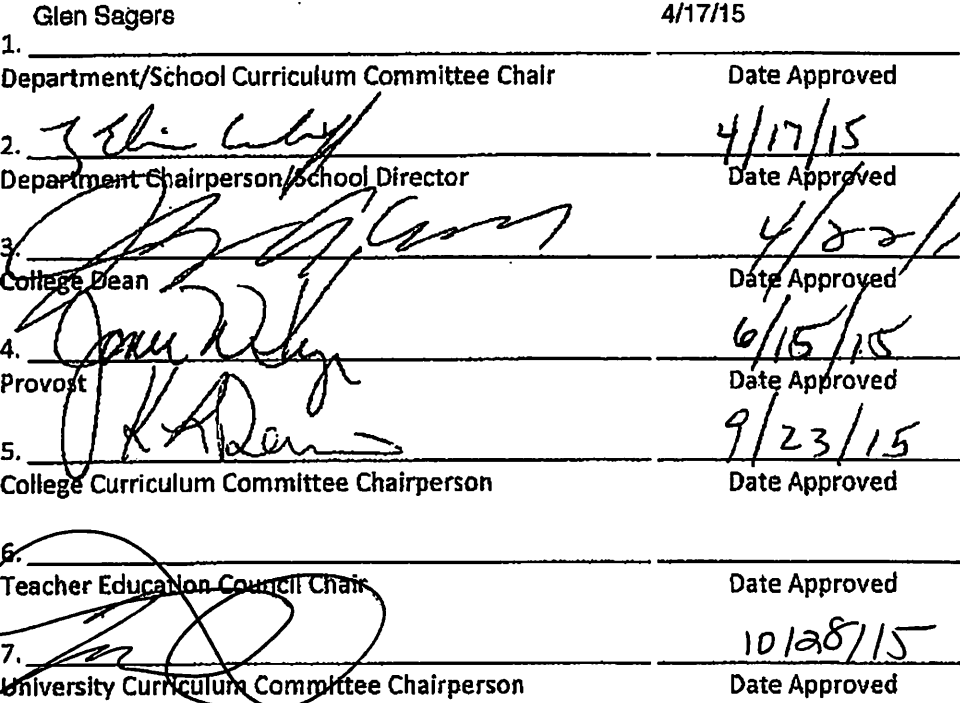 Glen Sagers 4/17/15
1.
Department/School Curriculum Committee Chair Date Approved
2. 4/17/15
Department Chairperson/School Director Date Approved
3. 4/22/1
College Dean Date Approved
4. 6/15/15
Provost Date Approved
5. 9/23/15
College Curriculum Committee Chairperson Date Approved
6.
Teacher Education Council Chair Date Approved
7. 10/28/15
University Curriculum Committee Chairperson Date Approved